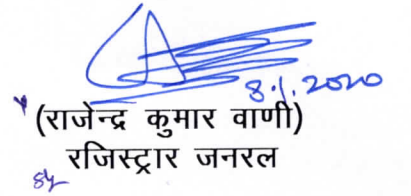 8.1.2020
(राजेन्द्र कुमार वाणी)
रजिस्ट्रार जनरल